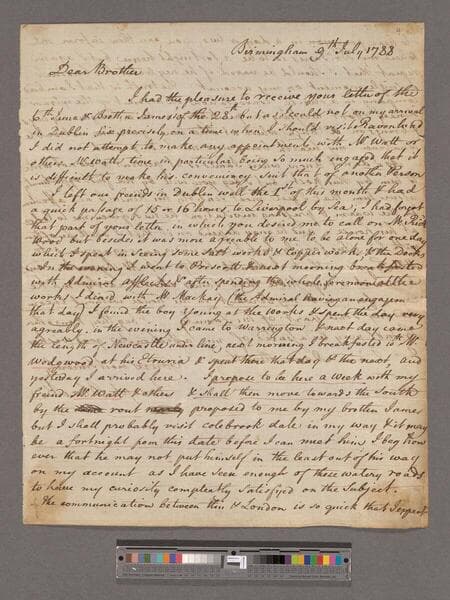 Birmingham 9th July 1788
Dear Brother
I had the pleasure to receive your letter of the
6th June & Brother James's of the 28th but as I could not on my arrival
in Dublin fix precisely on a time when I should visit
I did not attempt to make any appointments with Mr Watt or
others Mr Watts time in particular being so much engaged that it
is difficult to make his conveniency suit that of another Person
I left our friends in Dublin well the 1st of this month & had
a quick passage of 15 or 16 hours to Liverpool by Sea, I had forgot
that part of your letter in which you desired me to call on Mr
but besides it was more agreable to me to be alone for one day
which I spent in seeing some Salt works & Copper works & the Docks
In the evening I went to Prescott & next morning breakfasted
with Admiral & after spending the whole forenoon at the
works I dined with Mr Mackay (the Admiral having an engagem
that day) I found the boy Young at the Works & spent the day very
agreably, in the evening I came to Warrington & next day came
the length of Newcastle under line, next morning I breakfasted with Mr
Wedgwood at his Etruria & spent there that day & the next, and
yesterday I arrived here. I propose to be here a Week with my
friend Mr Watt & others & shall then move towards the South
by the rout proposed to me by my brother James
but I shall probably visit colebrook dale in my way & it may
be a fortnight from this date before I can meet him, I beg how
ever that he may not put himself in the least out of his way
on my account as I have seen enough of these watery roads
to have my curiosity compleatly satisfyed on the Subject.
The communication between this & London is so quick that I expect